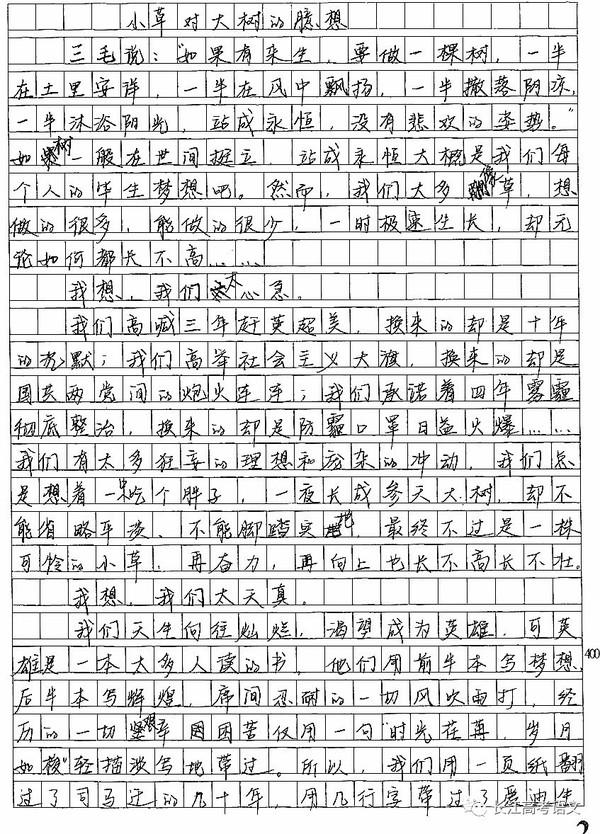 小草对大树的臆想
三毛说：“如果有来生，要做一棵树，一半
在土里安详，一半在风中飘扬，一半撒落阴凉，
一半沐浴阳光，站成永恒，没有悲欢的姿势。”
如树一般在世间挺立，站成永恒大概是我们每
个人的毕生梦想吧。然而，我们大多像草，想
做的很多，能做的很少，一时极速生长，却无
论如何都长不高……
我想，我们太心急。
我们高喊三年赶英超美，换来的却是十年
的沉默；我们高举社会主义大旗，换来的却是
国共两党间的炮火连连；我们承诺着四年雾霾
彻底整治，换来的却是防霾口罩日益火爆……
我们有太多狂妄的理想和庞杂的冲动，我们总
是想着一口吃个胖子，一夜长成参天大树，却不
能省略平淡、不能脚踏实地，最终不过是一株
可怜的小草，再奋力，再向上也长不高长不壮。
我想，我们太天真。
我们天生向往灿烂，渴望成为英雄，可英
雄是一本太多人读的书，他们用前半本写梦想，
后半本写辉煌，席间忍耐的一切风吹雨打，经
历的一切艰辛困苦仅用一句“时光荏苒，岁月
如梭”轻描淡写地带过。所以，我们用一页纸翻
过了司马迁的几十年，用几行字带过了爱迪生
400
长江高考语文
2